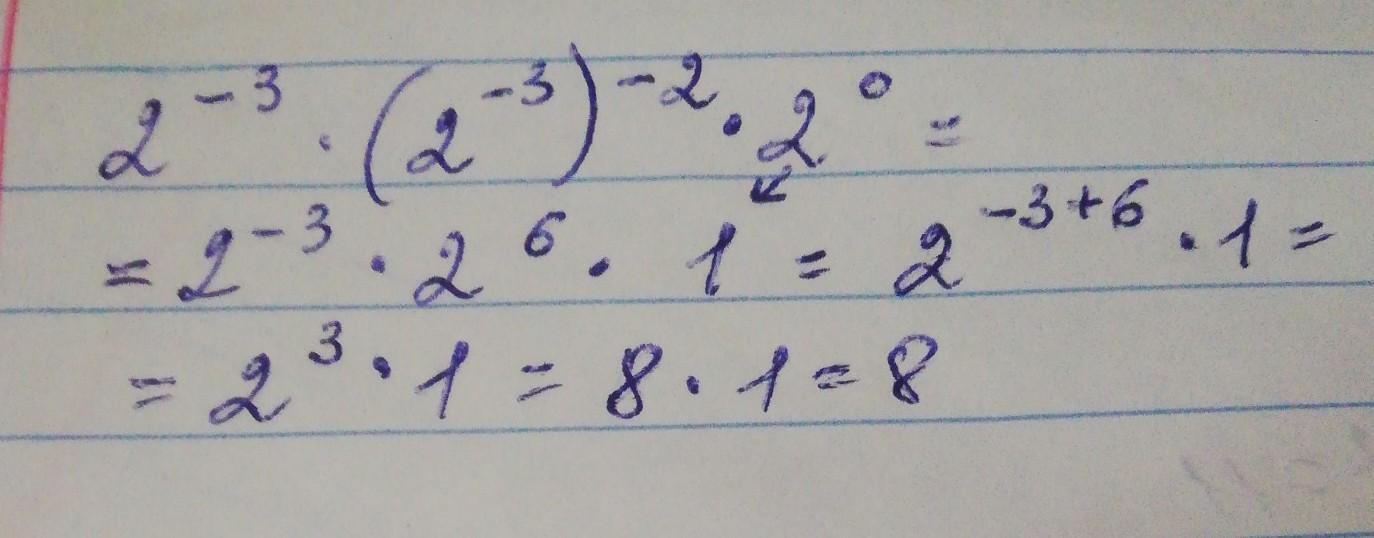 2⁻³ · (2⁻³)⁻² · 2⁰ =
= 2⁻³ · 2⁶ · 1 = 2⁻³⁺⁶ · 1 =
= 2³ · 1 = 8 · 1 = 8